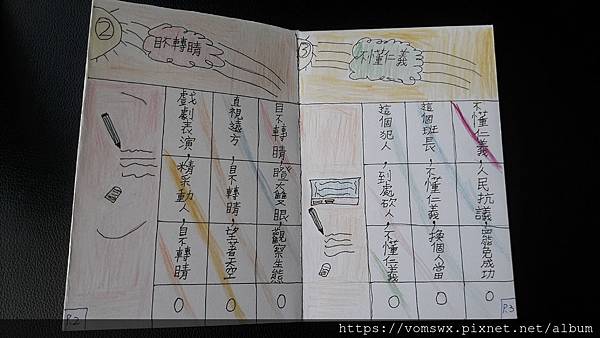 ②
目不轉睛
目不轉睛,瞪大雙眼,觀察生態。
直視遠方,目不轉睛,望著天空。
戲劇表演,精采動人,目不轉睛。
P.2
③
不懂仁義
不懂仁義,人民抗議,罷免成功。
這個班長,不懂仁義,換個人當。
這個犯人,到處砍人,不懂仁義。
P.3
https://vomswx.pixnet.net/album